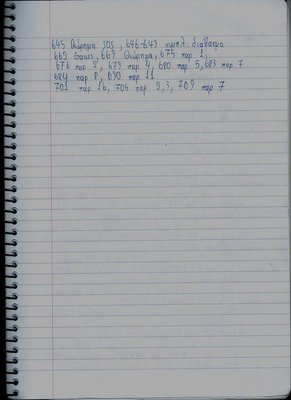 645 Θεώρημα SOS, 646-649 απλή διάβασμα
662 Gauss, 669 Θεώρημα, 675 παρ 1,
676 παρ 2, 679 παρ 4, 680 παρ 5, 683 παρ 7
684 παρ 8, 690 παρ 11
702 παρ 16, 705 παρ 2,3, 709 παρ 7